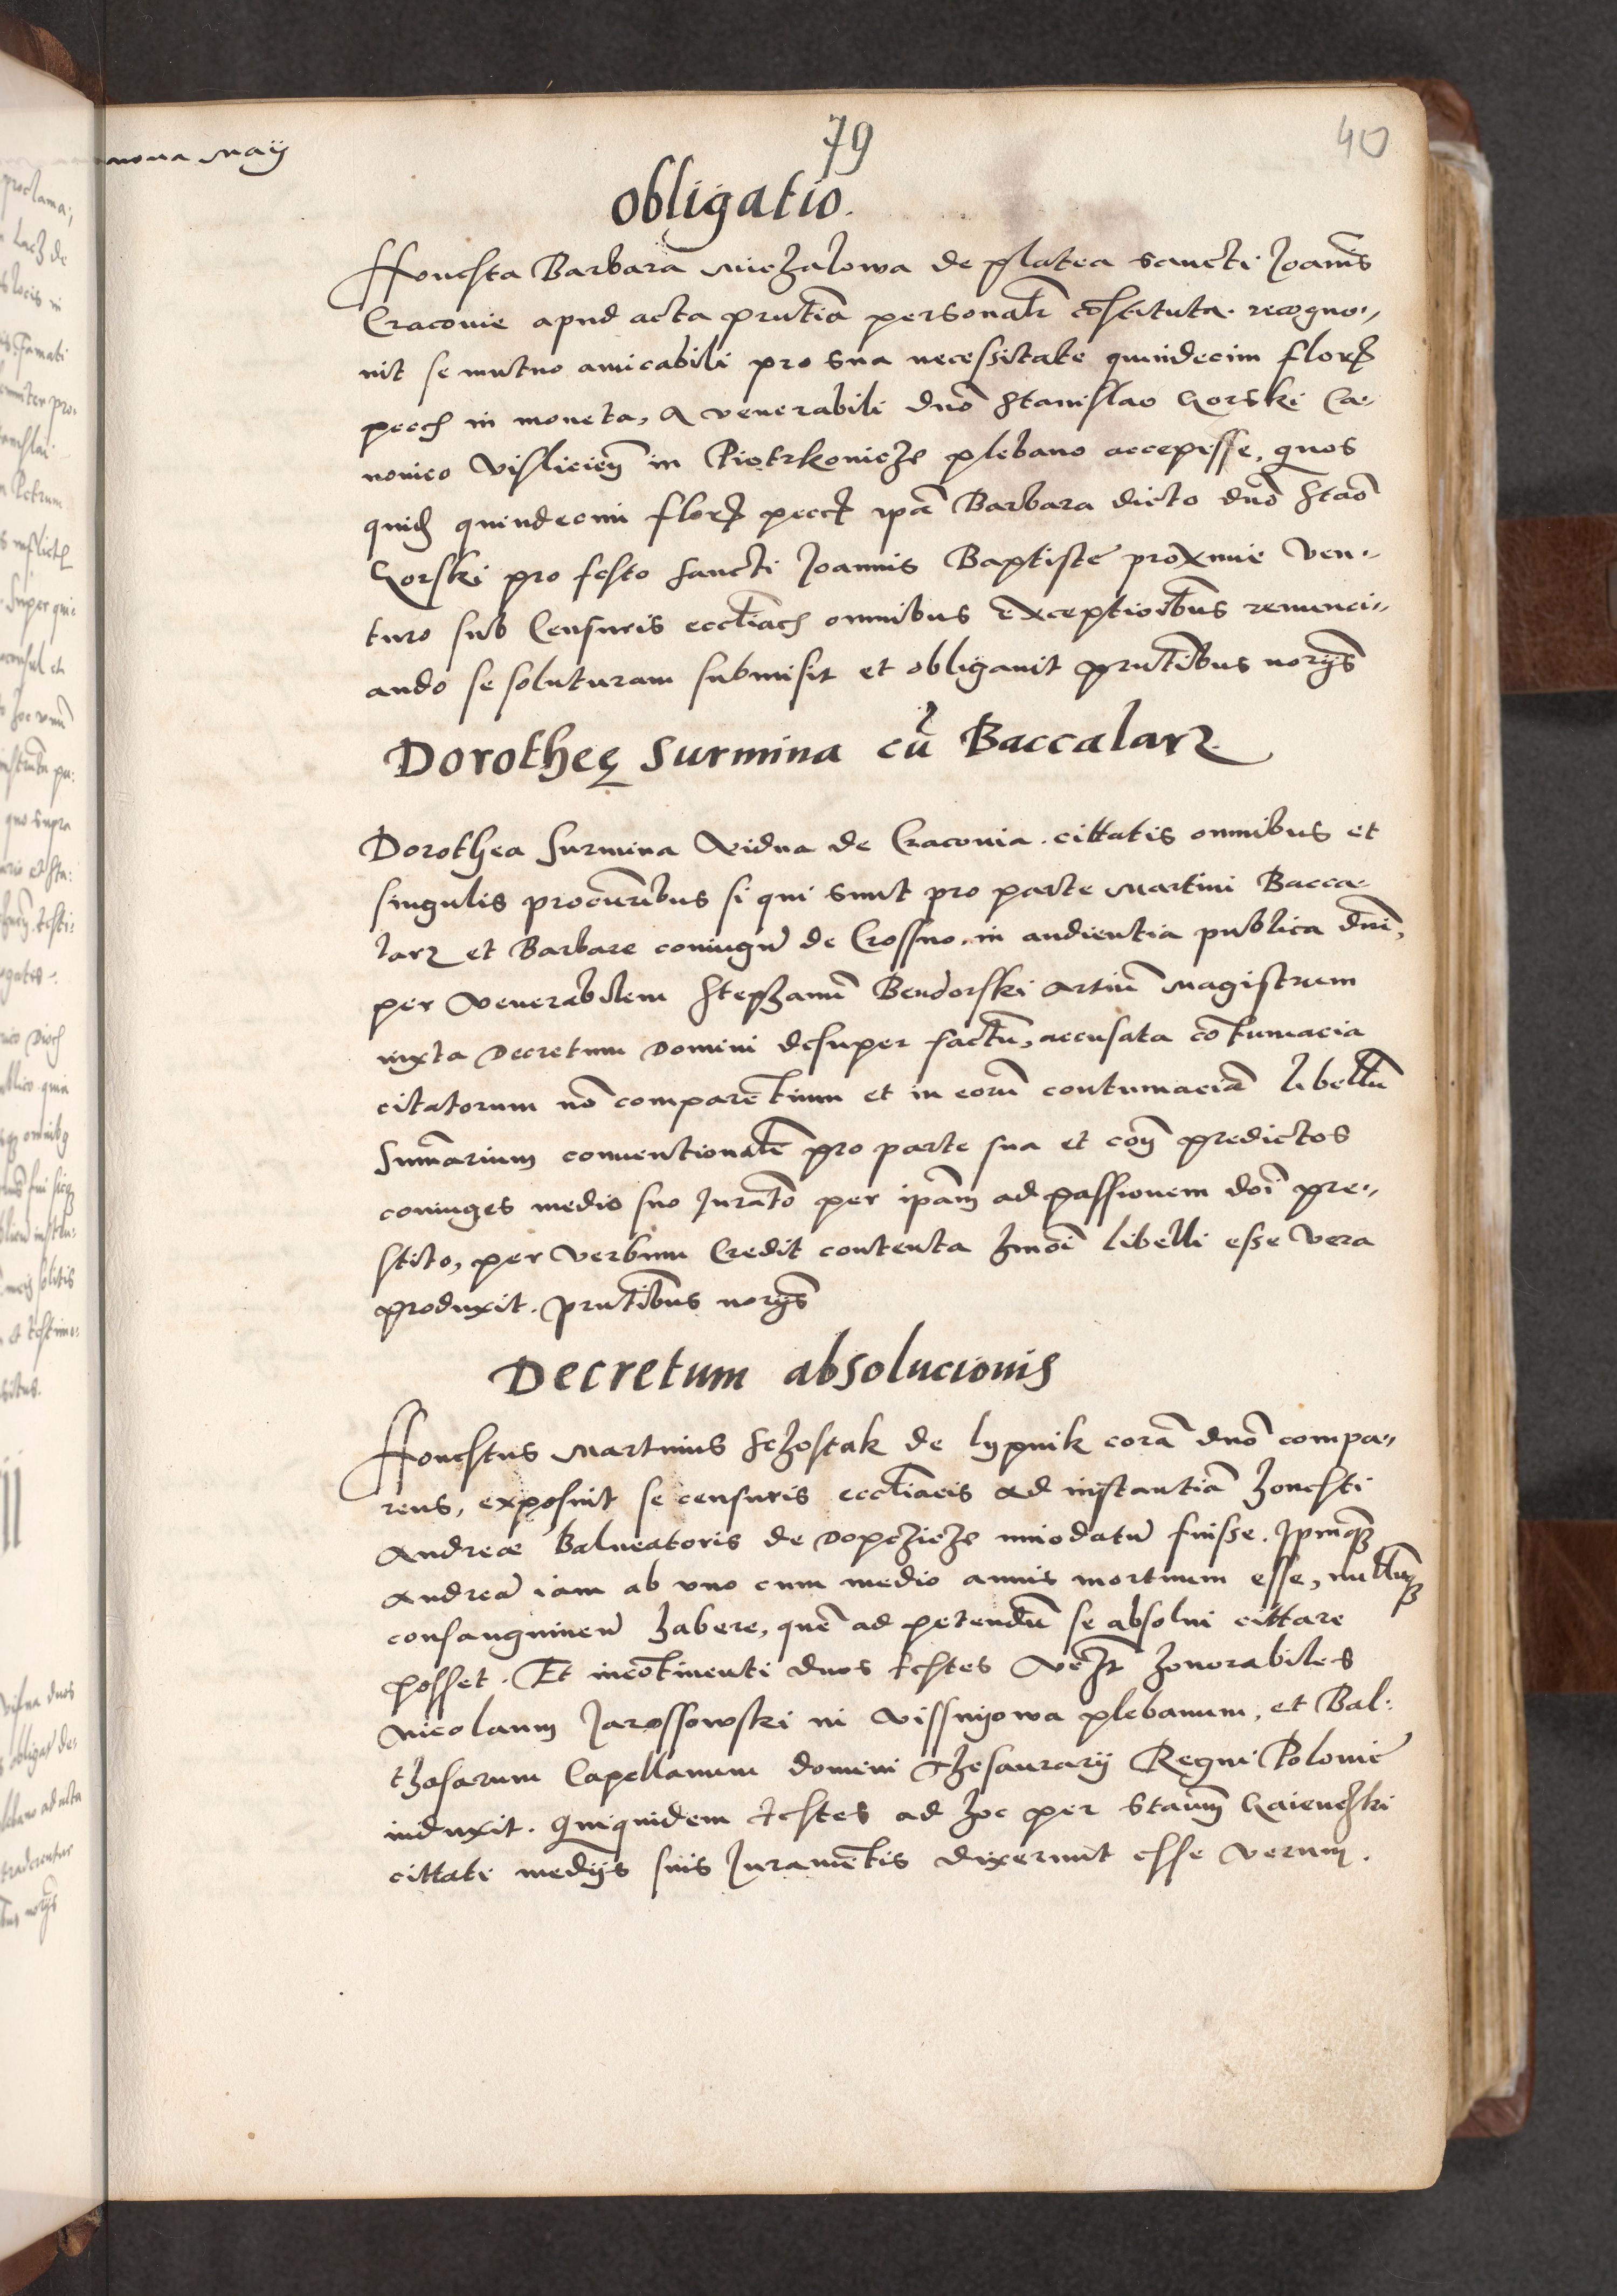 79
40
nona Maij
Obligatio.
Honesta Barbara Miehalowa de platea Sancti Joannis
Cracovie apud acta pñtia personalr cõstituta recogno„
uit se mutuo amicabili pro sua necessitate quindecim flor
pecch in moneta, a venerabili dnõ Stanislao Gorski Ca„
nonico Visliciem̃ in Piotrkoniche plebano accepisse, quos
quid quindecim flor pecc ipã Barbara dicto dnõ Staõ
Gorski pro festo sancti Joannis Baptiste proxime ven„
turo sub Censuris eccliach omnibus exceptioibus renunci„
ando se soluturam submisit et obligauit pñtibus norijs
Dorotheę Surmina cũ Baccalarz.
Dorothea Surmina vidua de Cracouia. cittatis omnibus et
singulis procuribus si qui sunt pro parte Martini Bacca„
larz et Barbare coniugũ de Crossno. in audientia publica dni,
per venerabilem Stephanũ Bendorski artiũ Magistrum
iuxta Decretum Domini desuper factũ, accusata cõtumacia
citatorum nõ comparẽtium et in eorũ contumaciã libellũ
Sum̃arium conuentionalẽ pro parte sua et con̄ predictos
coniuges medio suo Juratõ per ipãm ad passionem doĩ pre„
stito, per verbum Credit contenta hmõi libelli esse vera
produxit. pñtibus norijs
Decretum absolucionis
Honestus Martinus Schostak de lypnik corã dnõ compa„
rens, exposuit se censuris eccliacis ad instantiã honesti
Andreæ Balneatoris de Dopchiche innodatũ fuisse. Ipmq
Andreã iam ab vno cum medio annis mortuum esse, nullũq
consanguineũ habere, quẽ ad petendũ se absolui cittare
posset. Et incõtinenti duos testes vẽ honorabiles
Nicolaum Jarossowski in Vissnyowa plebanum, et Bal„
thasarum Capellanum domini Thesaurarij Regni Poloniæ
induxit. Quiquidem testes ad hoc per Stanm̃ Gaienchki
cittati medijs suis Juramẽtis dixerunt esse verum.